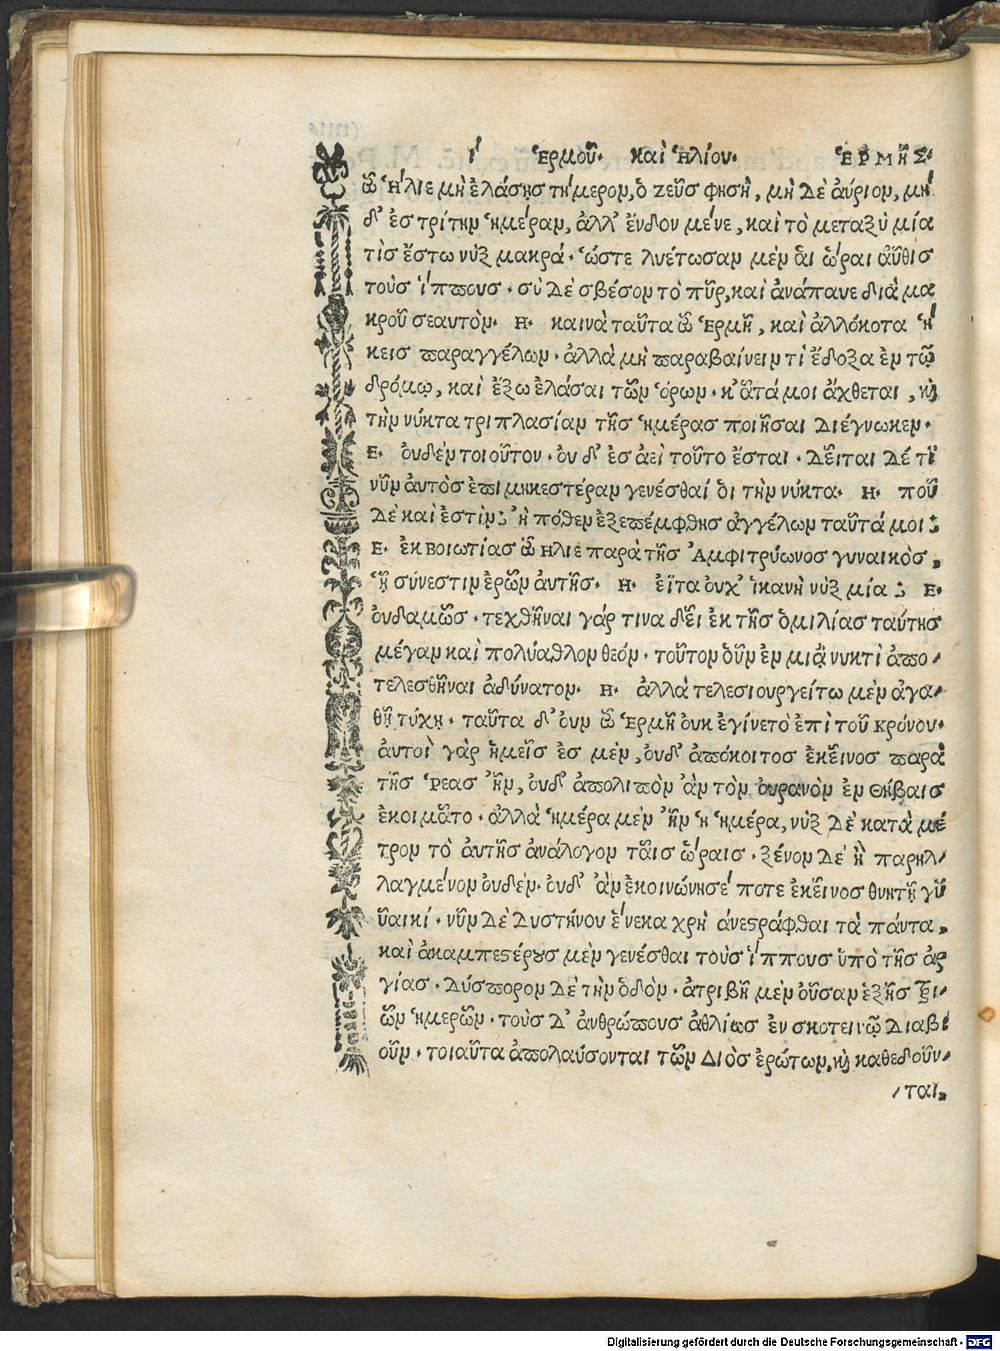 ί Ἑρμοῦ· καὶ Ἡλίου· ἙΡΜΗ͂Σ·
ὦ Ἥλιε μὴ ἐλάσῃς τήμερον, ὁ ζεῦς φησὴ, μὴ δὲ ἀύριον, μὴ
δ' ἐς τρίτην ἡμέραν, ἀλλ' ἔνδον μένε, καὶ τὸ μεταξὺ μία
τὶς ἔστω νὺξ μακρά· ὥστε λυέτωσαν μὲν ἁι ὧραι ἆυθις
τοὺς ἵππους· σὺ δὲ σβέσον τὸ πῦρ, καὶ ἀνάπαυε διὰ μα
κροῦ σεαυτὸν· Η· καινὰ ταῦτα ὦ Ἑρμῆ, καὶ ἀλλόκοτα ἥ
κεις παραγγέλων· ἀλλὰ μὴ παραβαίνειν τὶ ἔδοξα ἐν τῷ
δρόμῳ, καὶ ἔξω ἐλάσαι τῶν ὅρων· κᾆτά μοι ἄχθεται, καὶ
τὴν νύκτα τριπλασίαν τῆς ἡμέρας ποιῆσαι διέγνωκεν·
Ε· ὀυδὲν τοιοῦτον· ὀυ δ' ἐς ἀεὶ τοῦτο ἔσται· δεῖται δέ τι
νῦν ἀυτὸς ἐπιμηκεστέραν γενέσθαί ὁι τὴν νύκτα· Η· ποῦ
δὲ καὶ ἐστὶν; ἢ πόθεν ἐξεπέμφθης ἀγγέλων ταῦτά μοι;
Ε· ἐκ βοιωτίας ὦ Ηλιε παρὰ τῆς Ἀμφιτρύωνος γυναικὸς,
ᾗ σύνεστιν ἐρῶν ἀυτῆς· Η· ἐῖτα ὀυχ' ἱκανὴ νὺξ μία; Ε·
ὀυδαμῶς· τεχθῆναι γάρ τινα δεῖ ἐκ τῆς ὁμιλίας ταύτης
μέγαν καὶ πολύαθλον θεόν· τοῦτον ὀῦν ἐν μιᾷ νυκτὶ ἀπο
τελεσθῆναι ἀδύνατον· Η· ἀλλὰ τελεσιουργείτω μὲν ἀγα
θῇ τύχῃ· ταῦτα δ' ὀυν ὦ Ἑρμῆ ὀυκ ἐγίνετο ἐπὶ τοῦ κρόνου·
ἀυτοὶ γὰρ ἡμεῖς ἐς μὲν, ὀυδ' ἀπόκοιτος ἐκεῖνος παρὰ
τῆς Ῥεας ἦν, ὀυδ' ἀπολιπὼν ἂν τὸν ὀυρανὸν ἐν Θήβαις
ἐκοιμᾶτο· ἀλλὰ ἡμέρα μὲν ἦν ἡ ἡμέρα, νὺξ δὲ κατὰ μέ
τρον τὸ ἀυτῆς ἀνάλογον ταῖς ὥραις· ξένον δὲ ἢ παρηλ
λαγμένον ὀυδὲν· ὀυδ' ἂν ἐκοινώνησέ ποτε ἐκεῖνος θνητῇ γυ
ναικί· νῦν δὲ δυστήνου ἕνεκα χρὴ ἀνεστράφθαι τὰ πάντα,
καὶ ἀκαμπεστέρους μὲν γενέσθαι τοὺς ἵππους ὑπὸ τῆς ἀρ
γίας· δύσπορον δὲ τὴν ὁδὸν· ἀτριβῆ μὲν ὀῦσαν ἑξῆς τρι
ῶν ἡμερῶν· τοὺς δ' ἀνθρώπους ἀθλίως ἐν σκοτεινῷ διαβι
οῦν· τοιαῦτα ἀπολαύσονται τῶν Διὸς ἐρώτων, καὶ καθεδοῦν
ται,
Digitalisierung gefördert durch die Deutsche Forschungsgemeinschaft - DFG